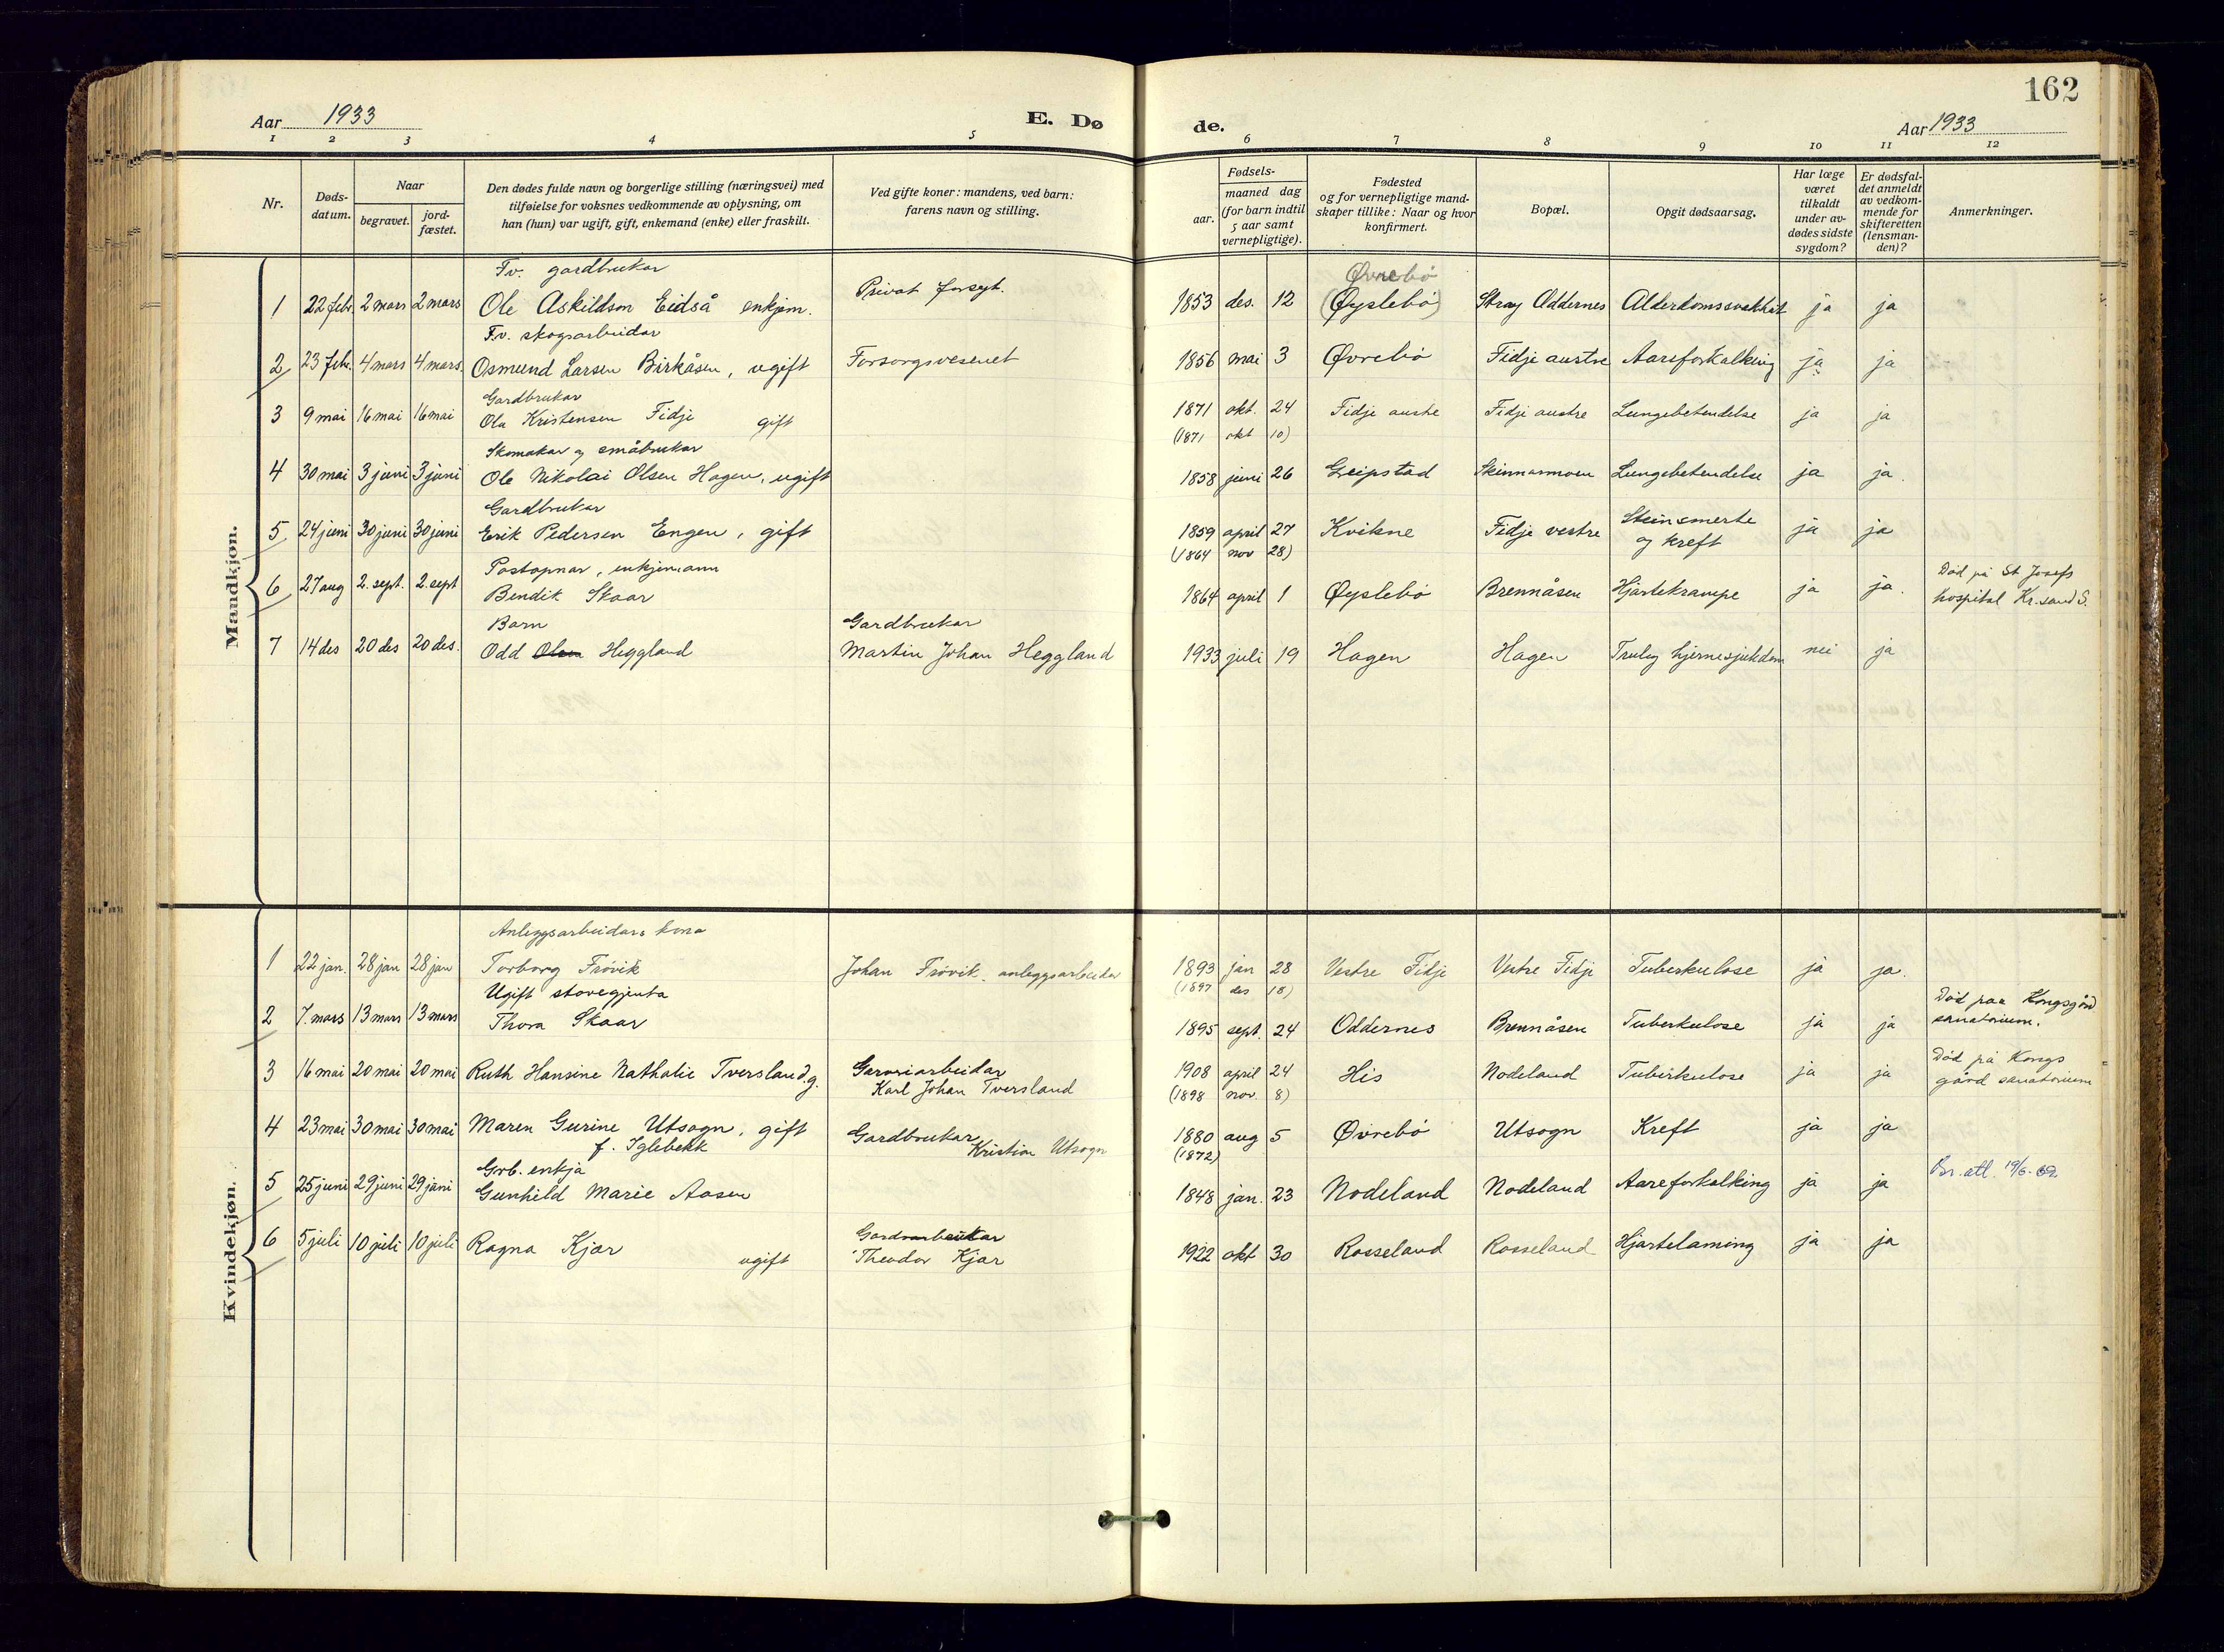 162
Aar 1933
E. Dø de.
Aar 1933
1 2 3 4 5 6 7 8 9 10 11 12
Nr.
Døds-datum.
Naar
begravet.
jord-fæstet.
Den dødes fulde navn og borgerlige stilling (næringsvei) med
tilføielse for voksnes vedkommende av oplysning, om
han (hun) var ugift, gift, enkemand (enke) eller fraskilt.
Ved gifte koner: mandens, ved barn:
farens navn og stilling.
Fødsels-
aar.
maaned dag
(for barn indtil
5 aar samt
vernepligtige).
Fødested
og for vernepligtige mand-
skaper tillike: Naar og hvor
konfirmert.
Bopæl.
Opgit dødsaarsag.
Har læge
været
tilkaldt
under av-
dødes sidste
sygdom?
Er dødsfal-
det anmeldt
av vedkom-
mende for
skifteretten
(lensman-
den)?
Anmerkninger.
Mandkjøn.
Fv. gardbrukar Øvrebø
1 22 febr. 2 mars 2 mars Ole Askildson Eidså enkjem. Privat forsyt. 1853 des. 12 (Øyslebø) Stray Oddernes Alderdomssvakhet ja ja
Fv. skogsarbeidar
2 23 febr. 4 mars 4 mars Osmund Larsen Birkåsen, ugift Forsorgsvesenet 1856 mai 3 Øvrebø Fidje austre Aareforkalking ja ja
Gardbrukar
3 9 mai 16 mai 16 mai Ola Kristensen Fidje gift 1871 okt. 24 Fidje austre Fidje austre Lungebetendelse ja ja
(1871 okt 10)
Skomakar og småbrukar
4 30 mai 3 juni 3 juni Ole Nikolai Olsen Hagen, ugift 1858 juni 26 Greipstad Skinnarmoen Lungebetendelse ja ja.
Gardbrukar
5 24 juni 30 juni 30 juni Erik Pedersen Engen, gift 1859 april 27 Kvikne Fidje vestre Steinsmerte og kreft ja ja
(1864 nov 28)
Postopnar, enkjemann
6 27 aug 2. sept. 2. sept Bendik Skaar 1864 april 1 Øyslebø Brennåsen Hjartekrampe ja ja. Død på St Josefs hospital Kr.sand S.
Barn Gardbrukar
7 14 des 20 des 20 des. Odd Olsen Heggland Martin Johan Heggland 1933 juli 19 Hagen Hagen Truleg hjernesjukdom nei ja
Kvindekjøn.
Anleggsarbeidars kona
1 22 jan. 28 jan 28 jan Torborg Frövik Johan Frövik. anleggsarbeidar 1893 jan 28 Vestre Fidje Vestre Fidje Tuberkulose ja ja.
(1897 des 18)
Ugift stovegjenta
2 7. mars 13 mars 13 mars Thora Skaar 1895 sept. 24 Oddernes Brennåsen Tuberkulose ja ja Død paa Kongsgård sanatorium.
3 16 mai 20 mai 20 mai Ruth Hansine Nathalie Tversland, g. Garveriarbeidar Karl Johan Tversland 1908 april 24 His Nodeland Tuberkulose ja ja Død på Kongsgård sanatorium
(1898 nov. 8)
4 23 mai 30 mai 30 mai Maren Gurine Utsogn, gift f. Iglebekk Gardbrukar Kristian Utsogn 1880 aug 5 Øvrebø Utsogn Kreft ja ja
(1872)
Grb. enkja
5 25 juni 29 juni 29 juni Gunhild Marie Aasen 1848 jan. 23 Nodeland Nodeland Aareforkalking ja ja 19/6-69
6 5 juli 10 juli 10 juli Ragna Kjær ugift Theodor Kjær 1922 okt 30 Rosseland Rosseland Hjartelaming ja ja